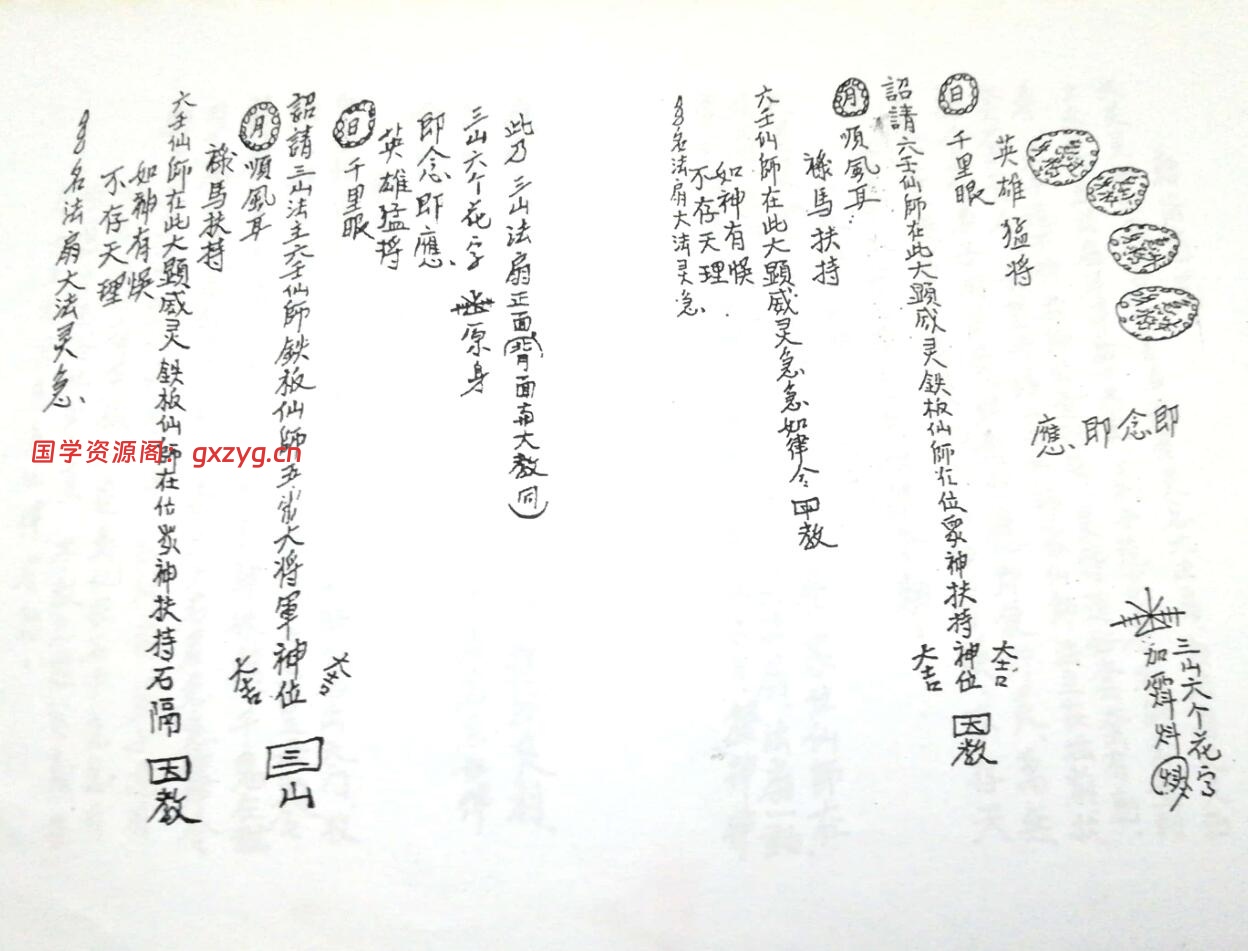 即念即應
三山六个花字
加
英雄猛将
日
千里眼
詔請六壬仙師在此大顕威灵鉄板仙師在位眾神扶持神位
大吉
大吉
大教
月
順風耳
祿馬扶持
六壬仙師在此大顕威灵急急如律令
教
如神有悞
不存天理
名法扇大法灵急
此乃三山法扇正面(背面南大教同)
三山六个花字
原身
即念即應
英雄猛将
日
千里眼
詔請三山法主六壬仙師鉄板仙師五雷大将軍神位
大吉
大吉
三山
月
順風耳
祿馬扶持
六壬仙師在此大顕威灵鉄板仙師在位眾神扶持石隔
大教
如神有悞
不存天理
名法扇大法灵急
国学资源阁：gxzyg.cn